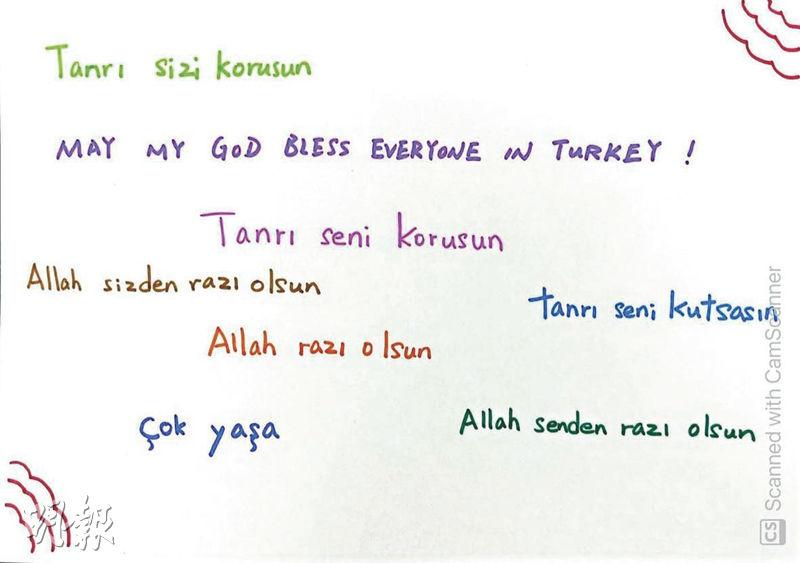 Tanrı sizi korusun
MAY MY GOD BLESS EVERYONE IN TURKEY !
Tanrı seni korusun
Allah sizden razı olsun
tanrı seni kutsasın
Allah razı olsun
Çok yaşa
Allah senden razı olsun
明報
CS Scanned with CamScanner